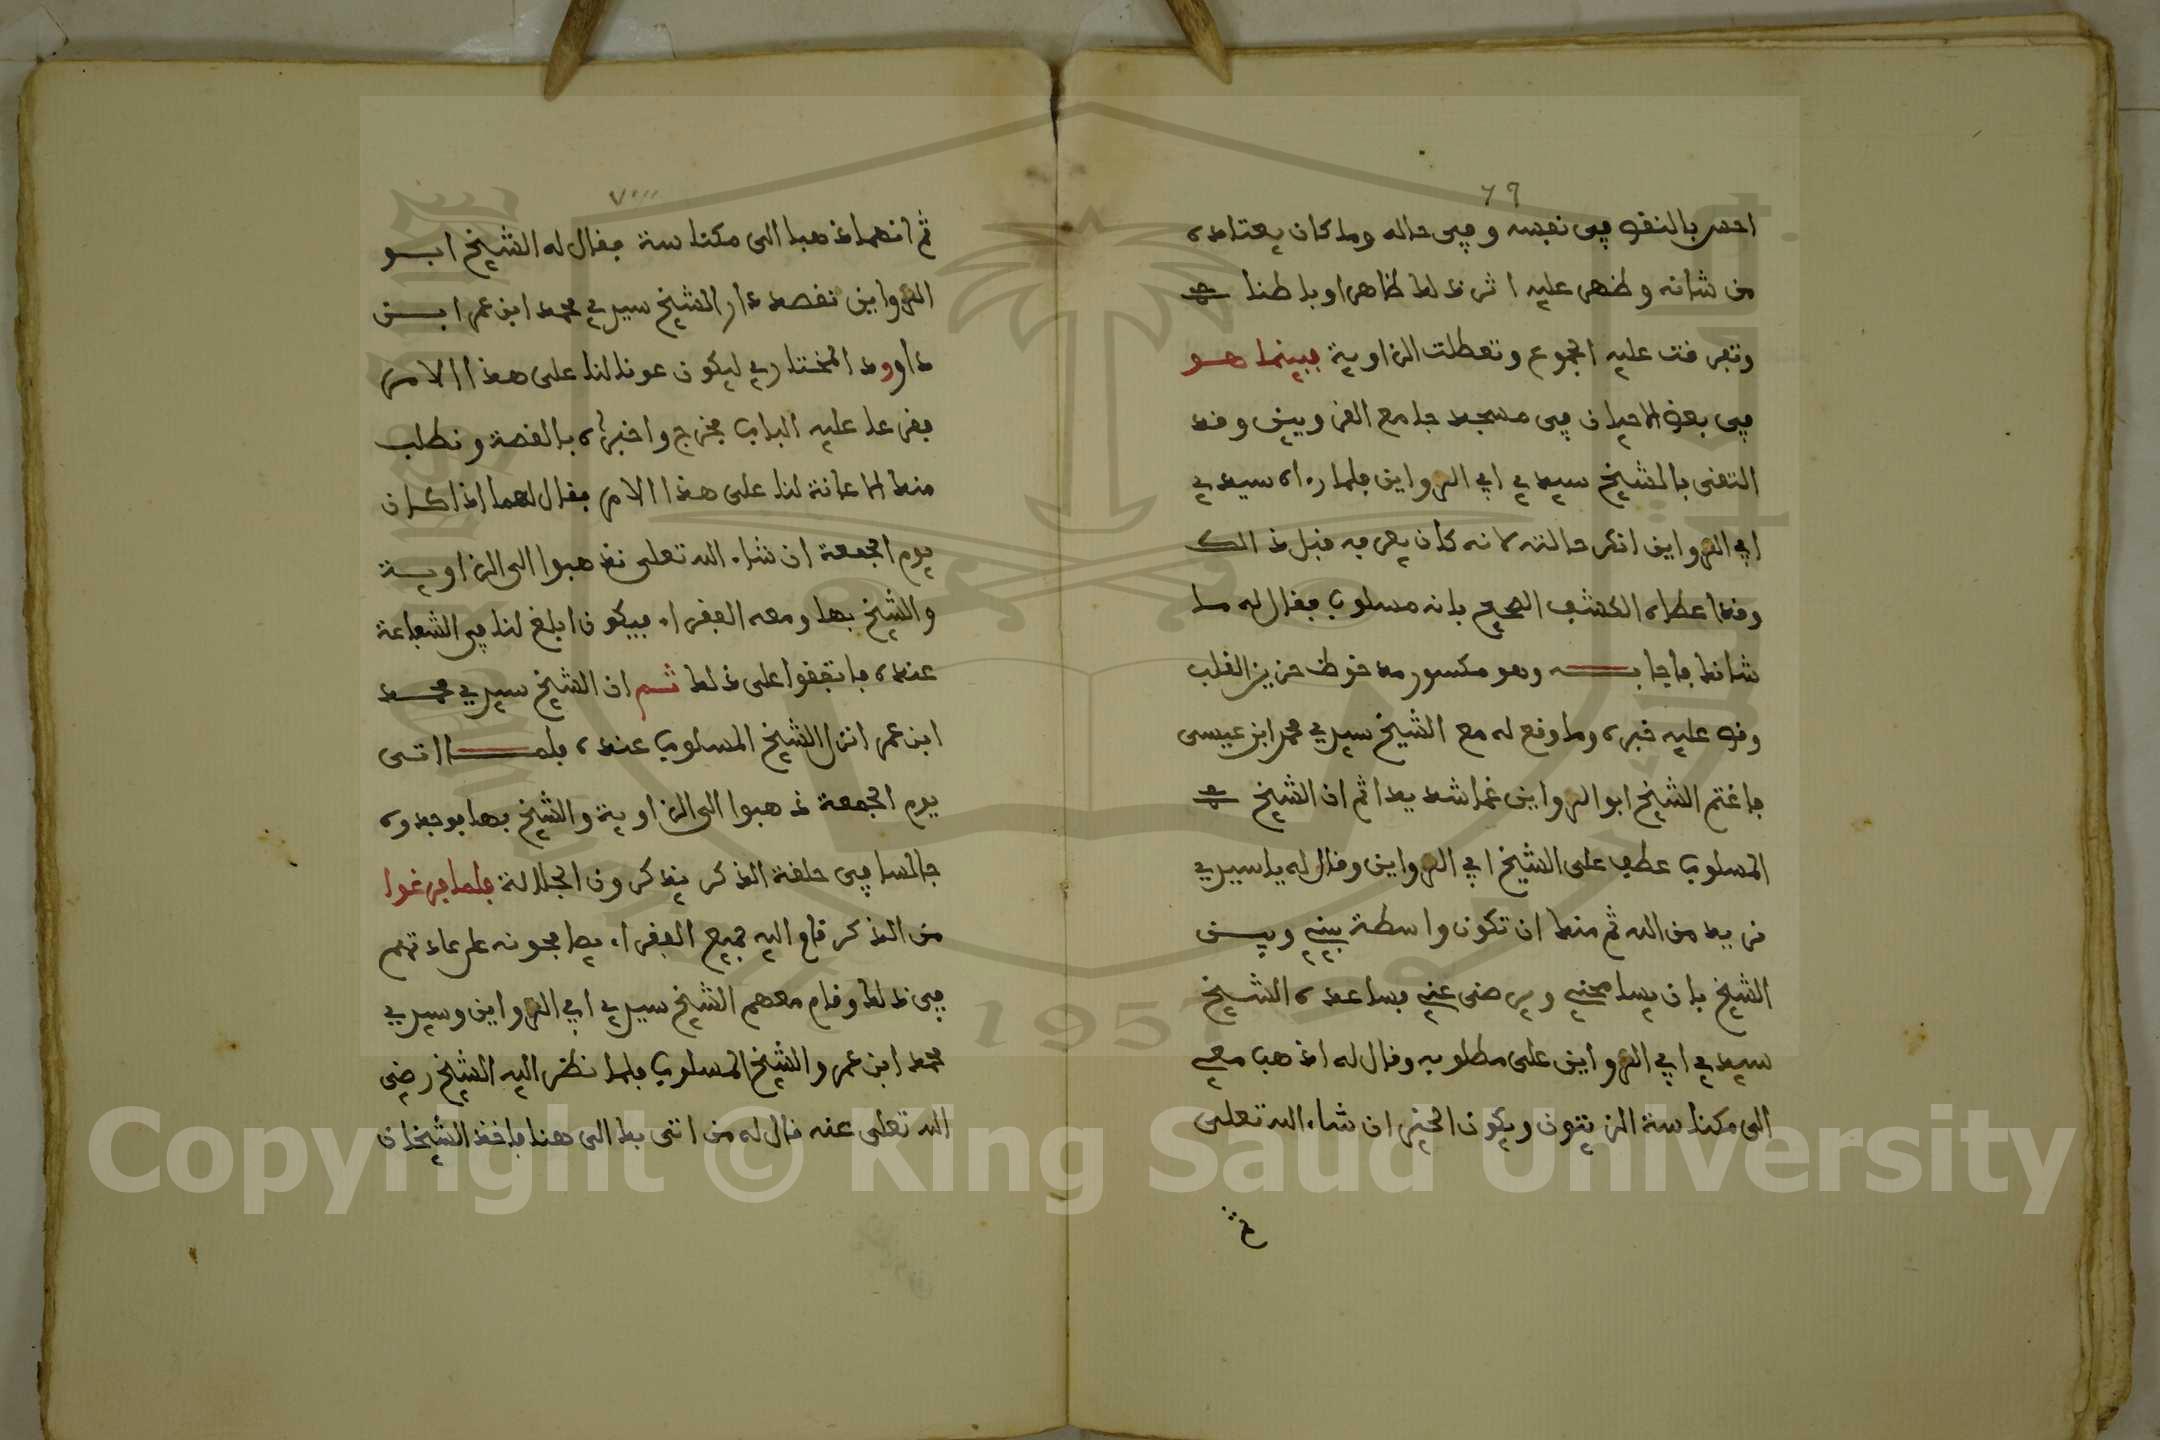 ٦٩
احس بالنقص في نفسه وفي حاله وما كان يعتاده
من شانه وظهر عليه اثر ذلك ظاهرا وباطنا
وتفرقت عليه الجموع وتعطلت الزاوية فبينما هو
في بعض الاحيان في مسجد جامع القرويين وقد
التقى بالشيخ سيدي ابي الرواين فلما رءاه سيدي
ابي الرواين انكر حالته لانه كان يعرفه قبل ذالك
وقد اعطاه الكشف الصحيح بانه مسلوب فقال له ما
شانك فاجابه وهو مكسور مدخوظ حزيز القلب
وقص عليه خبره وما وقع له مع الشيخ سيدي محمد ابن عيسى
فاغتم الشيخ ابو الرواين غما شديدا ثم ان الشيخ
المسلوب عطف على الشيخ ابي الرواين وقال له يا سيدي
نريد من الله ثم منك ان تكون واسطة بيني وبين
الشيخ بان يسامحني ويرضى عني فساعده الشيخ
سيدي ابي الرواين على مطلوبه وقال له اذهب معي
الى مكناسة الزيتون ويكون الخير ان شاء الله تعلى
ثم
٧٠
ثم انهما ذهبا الى مكناسة فقال له الشيخ ابو
الرواين نقصد دار الشيخ سيدي محمد ابن عمر ابن
داوود المختاري ليكون عونا لنا على هذا الامر
فقرعا عليه الباب فخرج واخبراه بالقصة ونطلب
منك الاعانة لنا على هذا الامر فقال لهما اذا كان
يوم الجمعة ان شاء الله تعلى نذهبوا الى الزاوية
والشيخ بها ومعه الفقراء فيكون ابلغ لنا في الشفاعة
عنده فاتفقوا على ذلك ثم ان الشيخ سيدي محمد
ابن عمر انزل الشيخ المسلوب عنده فلما اتى
يوم الجمعة ذهبوا الى الزاوية والشيخ بها فوجدوه
جالسا في حلقة الذكر يذكرون الجلالة فلما فرغوا
من الذكر قام اليه جميع الفقراء يصافحونه على عادتهم
في ذلك وقام معهم الشيخ سيدي ابي الرواين وسيدي
محمد ابن عمر والشيخ المسلوب فلما نظر اليه الشيخ رضي
الله تعلى عنه قال له من اتى بك الى هنا فاخذ الشيخان
Copyright © King Saud University
1957